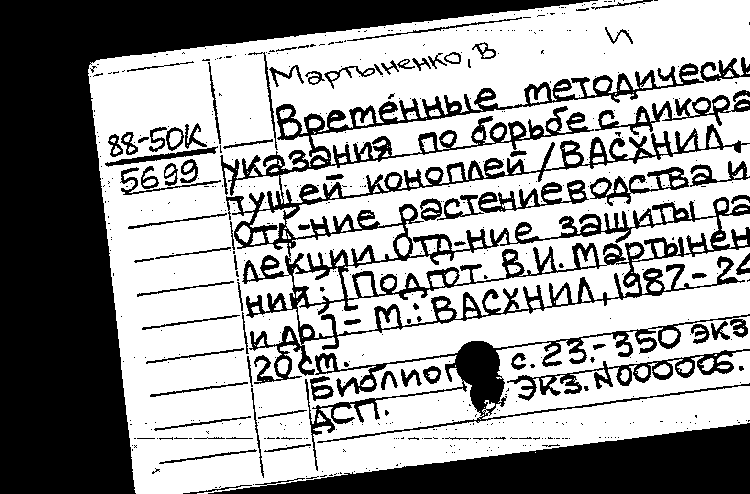 Мартыненко, В И
Временные методически
88-50К указания по борьбе с дикора
5699 тущей коноплей / ВАСХНИЛ.
Отд-ние растениеводства и
лекции. Отд-ние защиты ра
ний; [Подгот. В.И. Мартынен
и др.] - М.: ВАСХНИЛ, 1987. - 24
20 см.
Библиог с. 23. - 350 экз
ДСП. Экз. N000006.